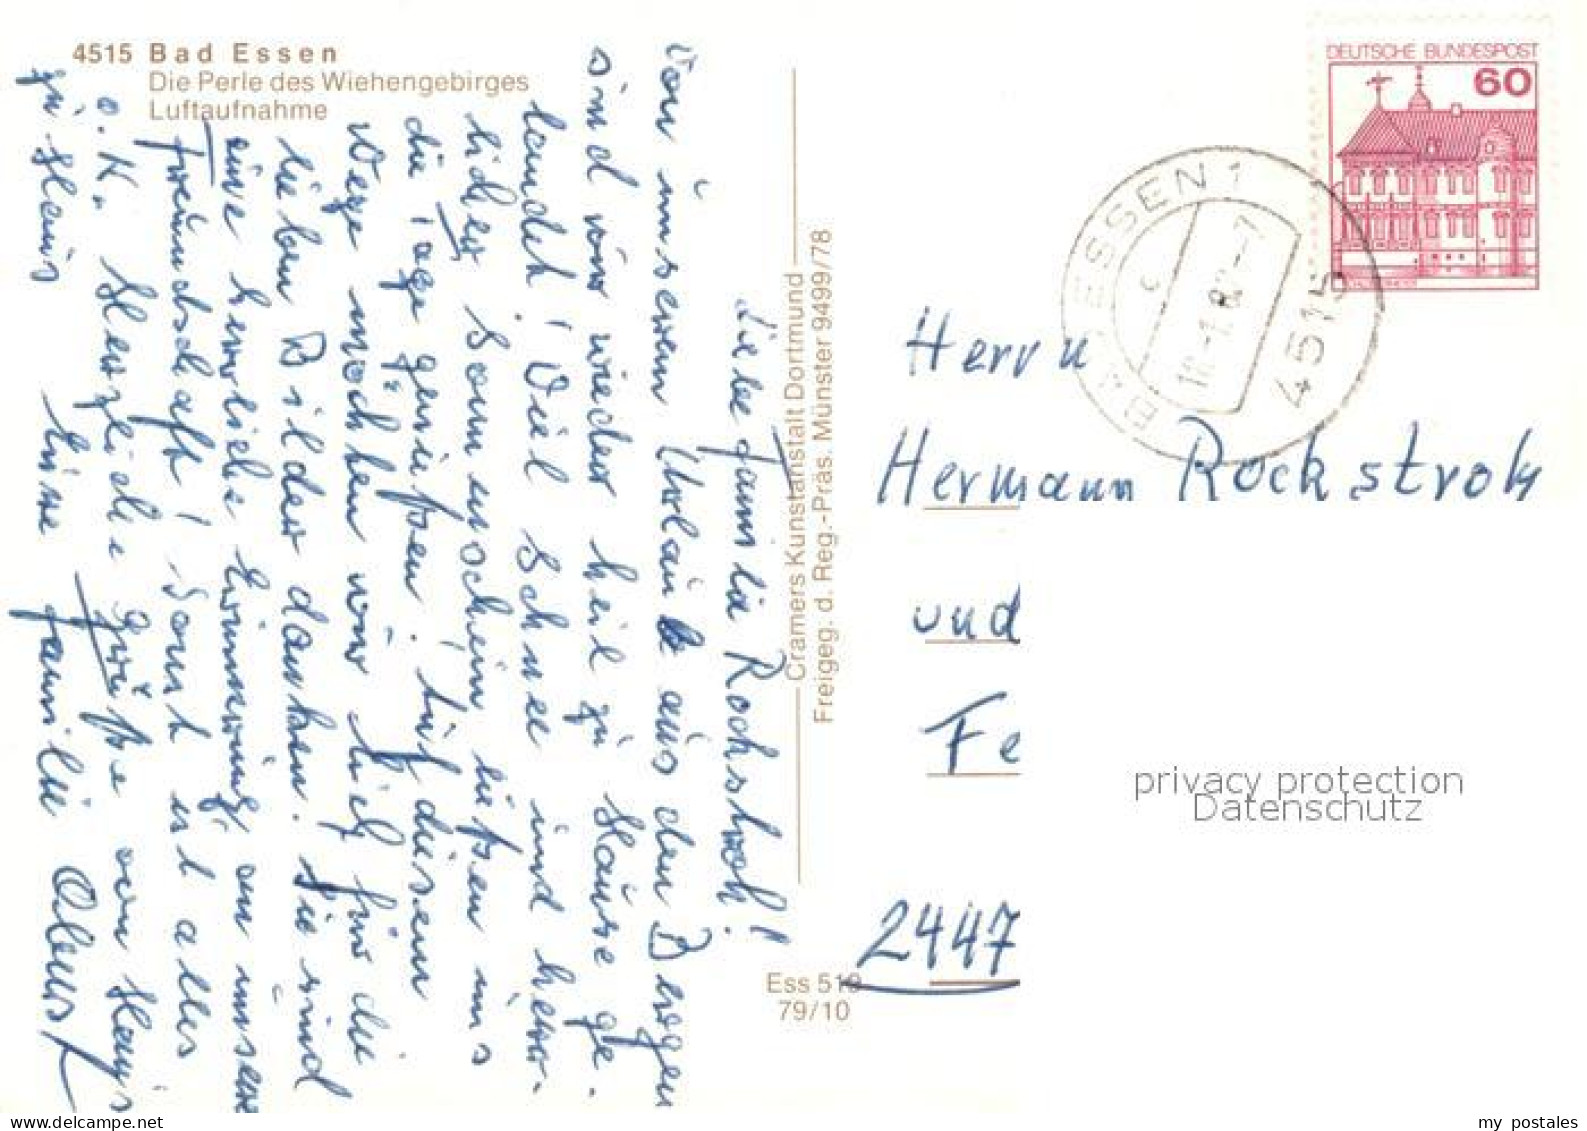 4515 Bad Essen
Die Perle des Wiehengebirges
Luftaufnahme
Liebe Familie Rockstroh!
Von unserem Urlaub aus den Bergen
sind wir wieder heil zu Hause ge-
landet! Viel Schnee und herr-
licher Sonnenschein ließen uns
die Tage genießen. Auf diesem
Wege möchten wir Euch für die
lieben Bilder danken. Sie sind
eine herrliche Erinnerung an unsere
Freundschaft! Sonst ist alles
o.K. Herzliche Grüße von Haus
zu Haus Eure Familie
Cramers Kunstanstalt Dortmund
Freigeg. d. Reg.-Präs. Münster 9499/78
Ess 519
79/10
DEUTSCHE BUNDESPOST
60
BAD ESSEN 1
c
4515
Herrn
Hermann Rockstroh
und
Fe
2447
privacy protection
Datenschutz
www.delcampe.net
my_postales